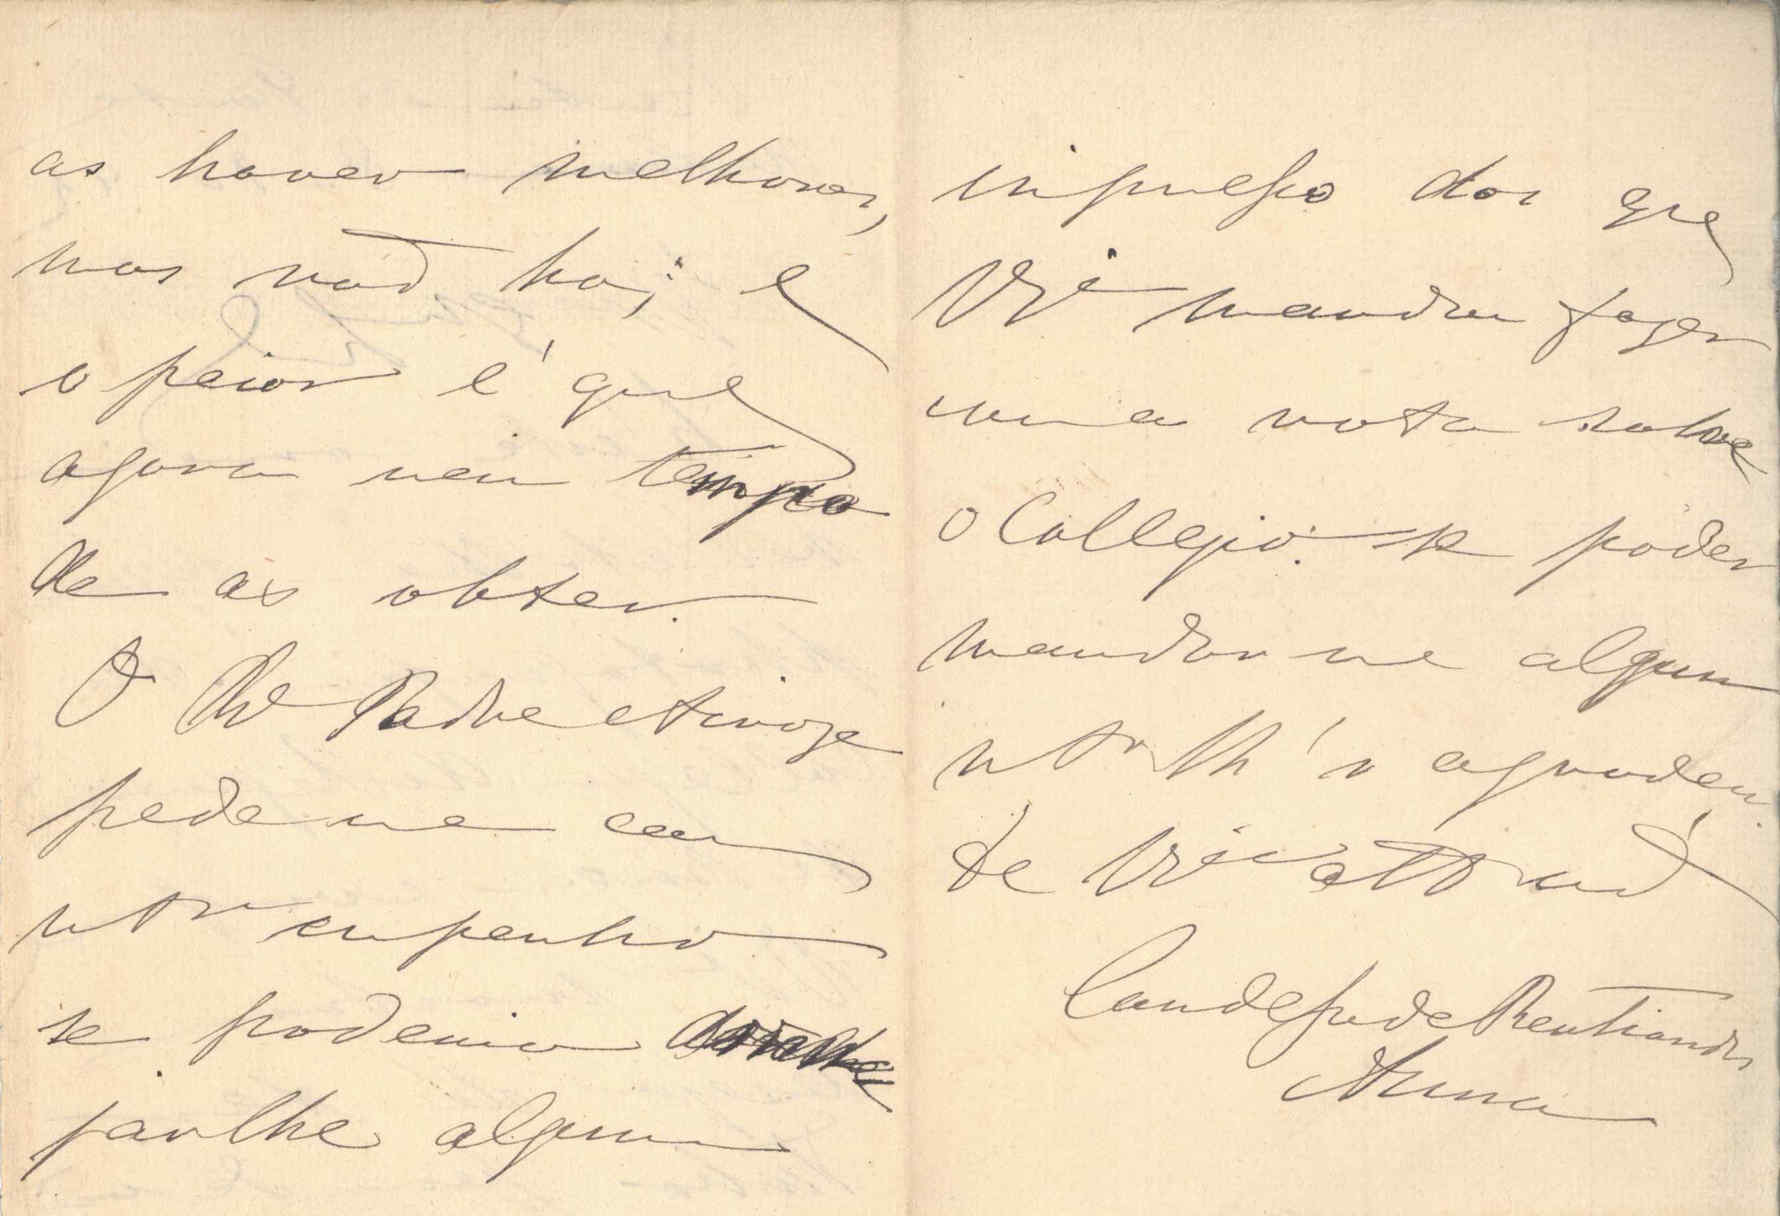 as haver melhores,
mas não ha; e
o peior é que
agora nem tempo
de as obter.
O Rdo Padre
pede me com
mto empenho
se poderia
jar lhe algum
impresso dos que
VExcia mandou fazer
uma nota sobre
o Collegio: se poder
mandar me algum
mto lh'o agradeceu
De VExcia atto
Condessa de
Anna